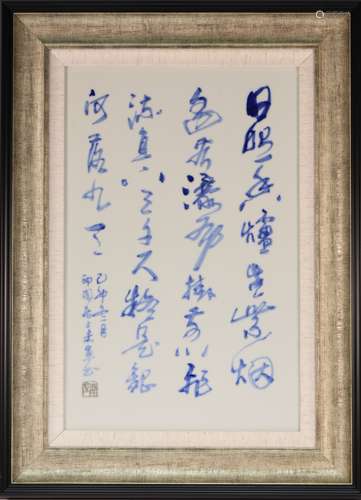 日照香爐生紫烟
遥看瀑布掛前川飛
流直下三千尺疑是銀
河落九天
己卯